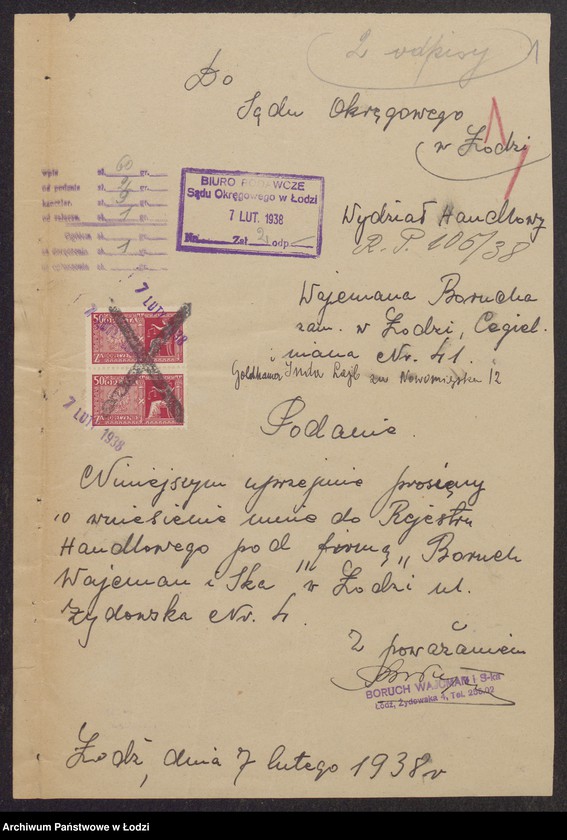 2 odpisy 1
Do
Sądu Okręgowego
w Łodzi
wpis zł. 60 gr.
od podania zł. gr.
kancelar. zł. gr.
od załączn. zł. 1 gr.
Ogółem zł. gr.
za doręczenie zł. 1 gr.
za ogłoszenie zł. gr.
BIURO PODAWCZE
Sądu Okręgowego w Łodzi
7 LUT. 1938
Nr. Zał 2 odp
Wydział Handlowy
R. P. 106/38
Wajemana Borucha
zam. w Łodzi, Cegiel.
niana Nr. 41.
i Goldhamer Inda Lajb zam Nowomiejska 12
7 LUT. 1938
50 GR
50 GR
7 LUT. 1938
Podanie.
Niniejszym uprzejmie prosimy
o wniesienie mnie do Rejestru
Handlowego pod „firmą„ Boruch
Wajeman i Ska w Łodzi ul.
Żydowska Nr. 4.
Z poważaniem
BORUCH WAJCMAN i S-ka
Łódź, Żydowska 4, Tel. 205.02
Łódź, dnia 7 lutego 1938 r
Archiwum Państwowe w Łodzi